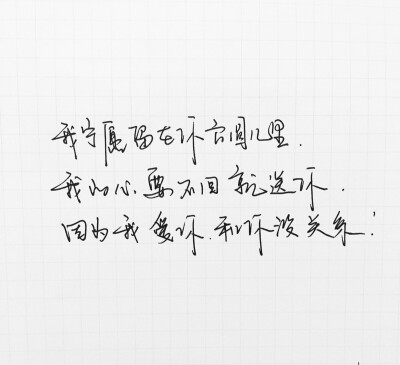 我宁愿留在你方圆几里.
我的心.要不回就送你.
因为我爱你.和你没关系!